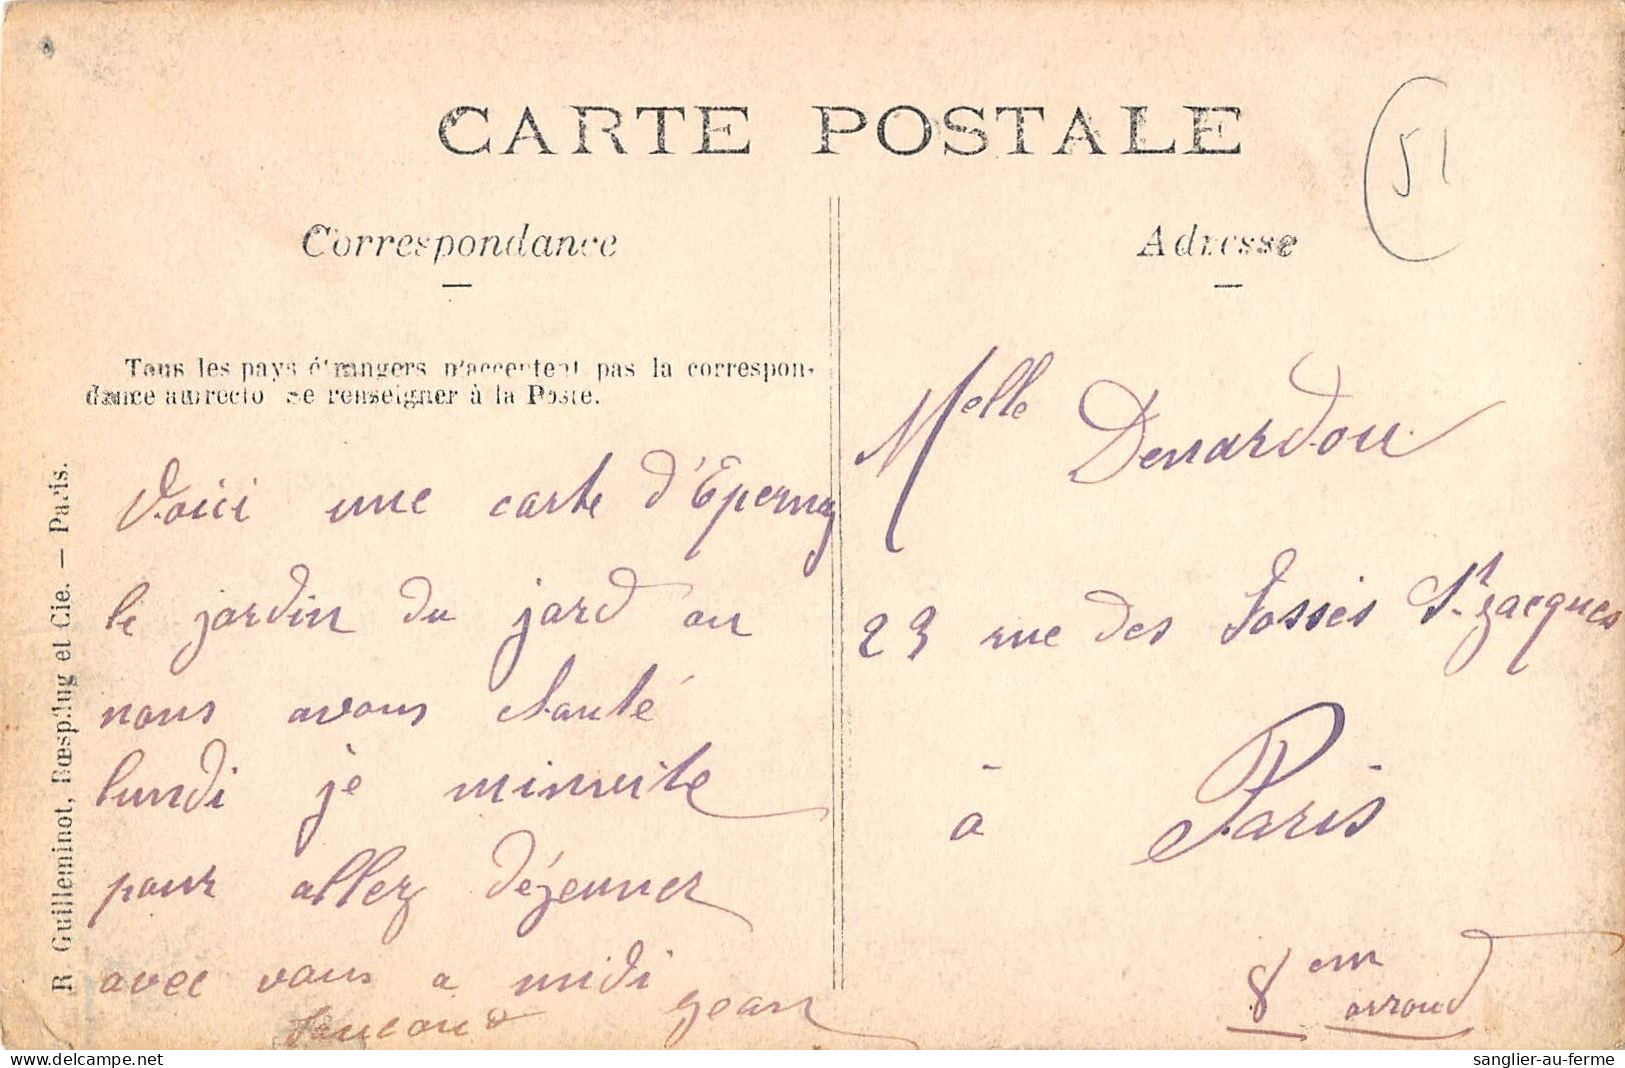 CARTE POSTALE
51
Correspondance
Adresse
Tous les pays étrangers n'acceptent pas la correspon-
dance au recto Se renseigner à la Poste.
Voici une carte d'Epernay
le jardin du jard ou
nous avons chanté
lundi je minvite
pour allez déjeuner
avec vous a midi
Jean
Melle Denardou
23 rue des Fossés St Jacques
à Paris
8em arrond
R Guilleminot, Bœspflug et Cie. — Paris.
sanglier-au-ferme